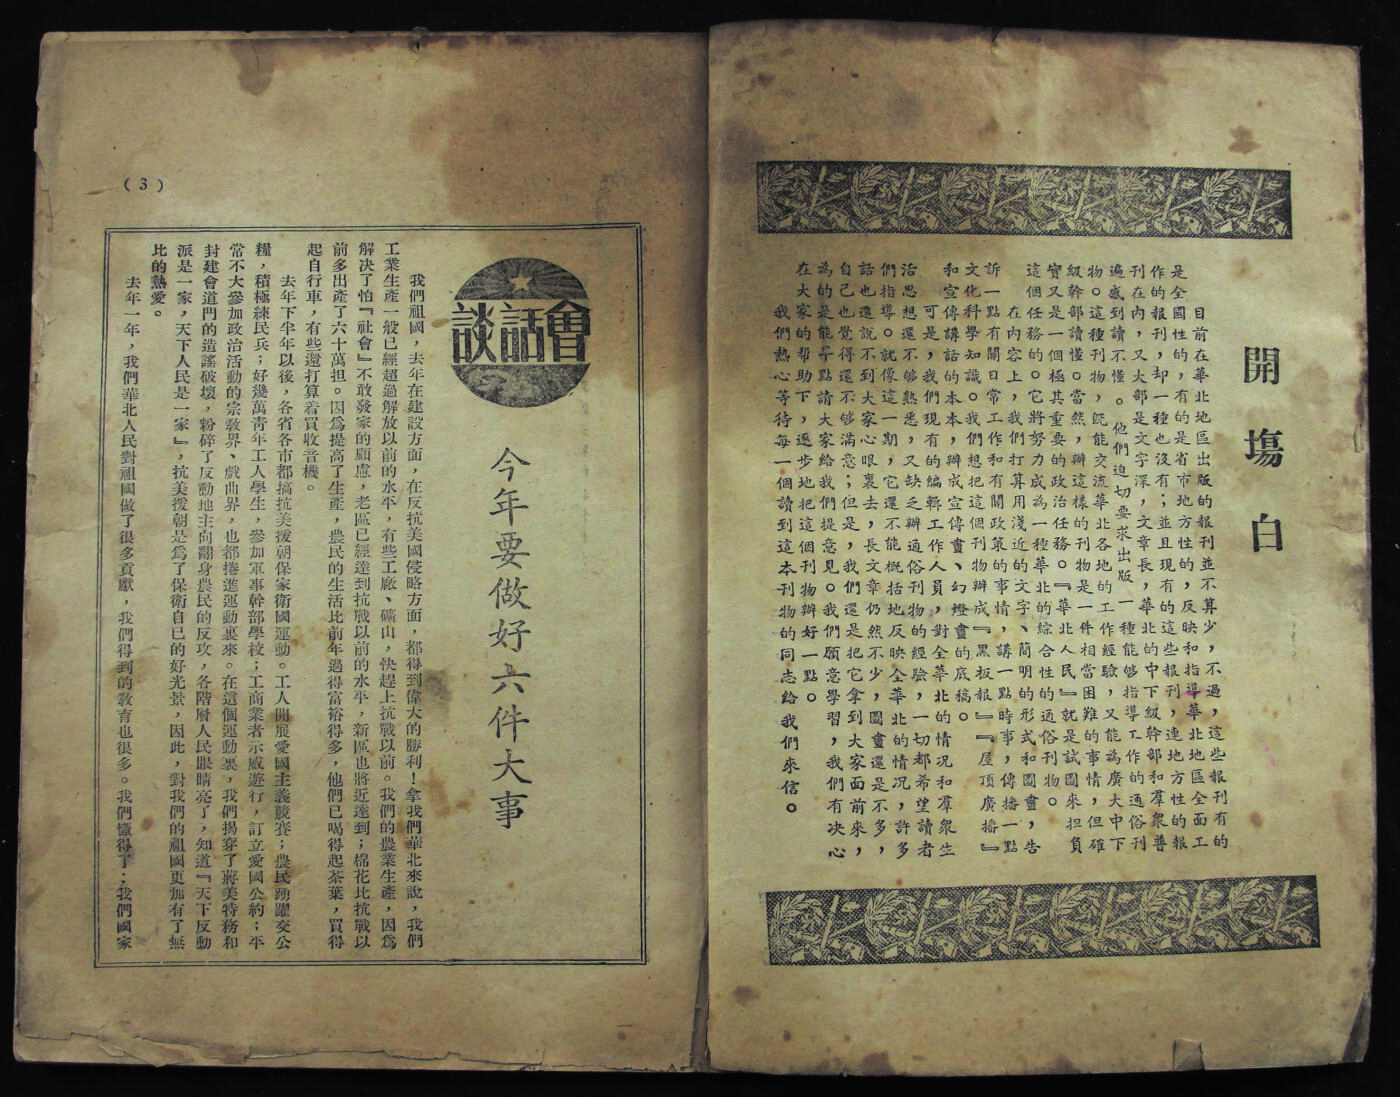 開場白
目前在華北地區出版的報刊並不算少，不過，這些報刊有的
是全國性的，有的是省市地方性的，反映和指導華北地區全面工
作的報刊，却一種也沒有；並且現有的這些報刊，連地方性的報
刊在內，又大部是文字深，文章長，華北的中下級幹部和羣衆普
遍感到讀不懂。他們迫切要求出版一種能够指導工作的通俗刊
物。這種刊物，旣能交流華北各地的工作經驗，又能為廣大中下
級幹部讀懂。當然，辦這樣的刊物是一件相當困難的事情，但確
實又是一個極其重要的政治任務。『華北人民』就是試圖來担負
這個任務的。它將努力成為一種華北的綜合性的通俗刊物。
在內容上，我們打算用淺近的文字、簡明的形式和圖畫，告
訴一點有關日常工作和有關政策的事情，講一點時事，傳播一點
文化科學知識。我們想把這個刊物辦成『黑板報』『屋頂廣播』
和宣傳講話的本本，辦成宣傳畫、幻燈畫的底稿。
可是，我們現有的編輯工作人員，對全華北的情况和羣衆生
活思想還不够熟悉，又缺乏辦通俗刊物的經驗，一切都希望讀者
們指導。就像這一期，它還不能概括地反映全華北的情况，許多
話也還說不到大家心眼裏去，長文章仍然不少，圖畫還是不多，
自己也覺得還不够滿意；但是，我們還是把它拿到大家面前來，
為的是能早點請大家給我們提意見。我們願意學習，我們有决心
在大家的帮助下，逐步地把這個刊物辦好一點。
我們熱心等待每一個讀到這本刊物的同志給我們來信。
（3）
談話會
今年要做好六件大事
我們祖國，去年在建設方面，在反抗美國侵略方面，都得到偉大的勝利！拿我們華北來說，我們
工業生產一般已經超過解放以前的水平，有些工廠、礦山，快趕上抗戰以前。我們的農業生產，因爲
解决了怕『社會』不敢發家的顧慮，老區已經達到抗戰以前的水平，新區也將近達到；棉花比抗戰以
前多出產了六十萬担。因爲提高了生產，農民的生活比前年過得富裕得多，他們已喝得起茶葉，買得
起自行車，有些還打算着買收音機。
去年下半年以後，各省各市都搞抗美援朝保家衛國運動。工人開展愛國主義競賽；農民踴躍交公
糧，積極練民兵；好幾萬靑年工人學生，參加軍事幹部學校；工商業者示威遊行，訂立愛國公約；平
常不大參加政治活動的宗敎界、戲曲界，也都捲進運動裏來。在這個運動裏，我們揭穿了蔣美特務和
封建會道門的造謠破壞，粉碎了反動地主向翻身農民的反攻，各階層人民眼睛亮了，知道『天下反動
派是一家，天下人民是一家』，抗美援朝是爲了保衛自己的好光景，因此，對我們的祖國更加有了無
比的熱愛。
去年一年，我們華北人民對祖國做了很多貢獻，我們得到的敎育也很多。我們懂得了：我們國家